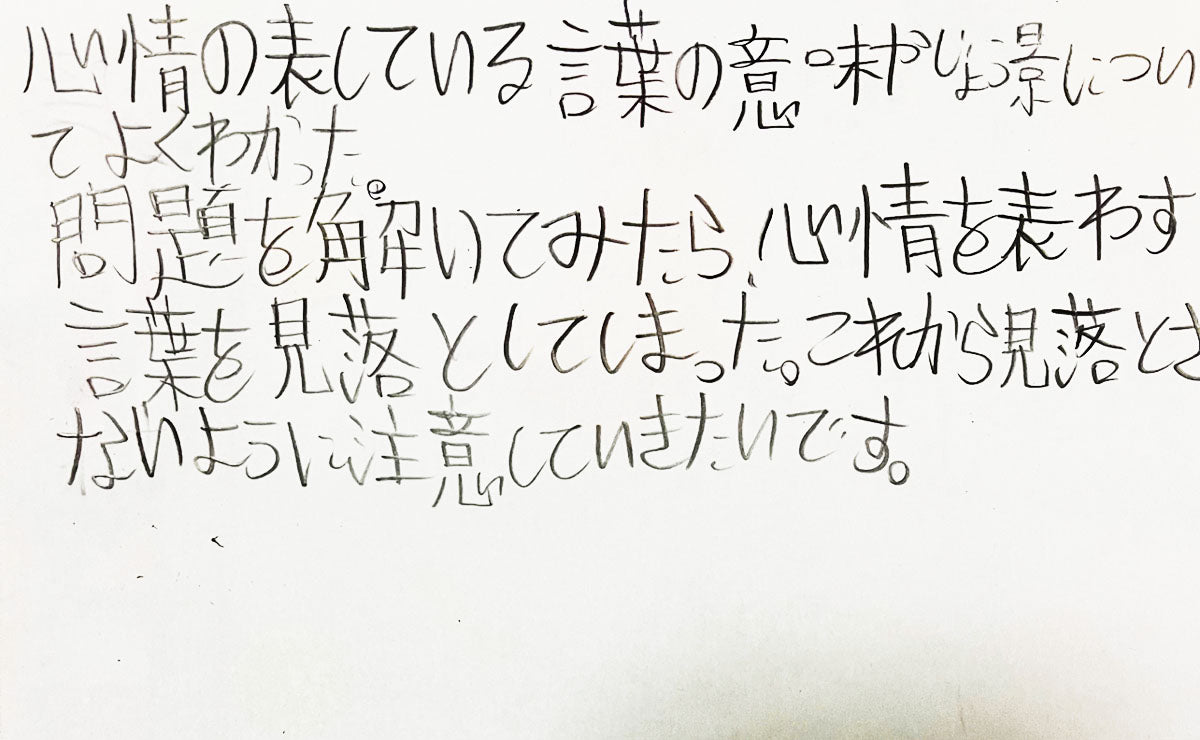 心情の表している言葉の意味やじょう景につい
てよくわかった。
問題を解いてみたら、心情を表わす
言葉を見落としてしまった。これから見落とさ
ないように注意していきたいです。